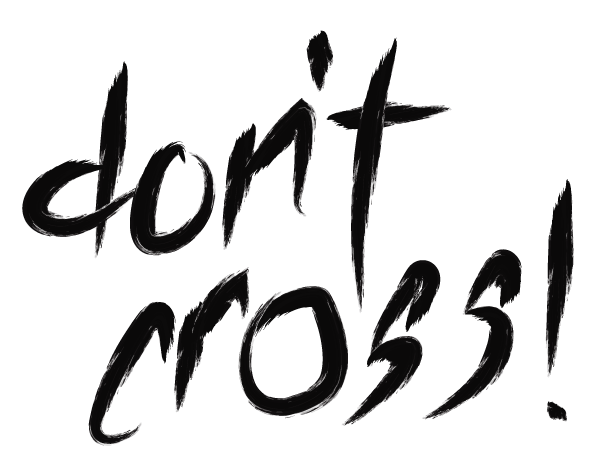 don't
cross!